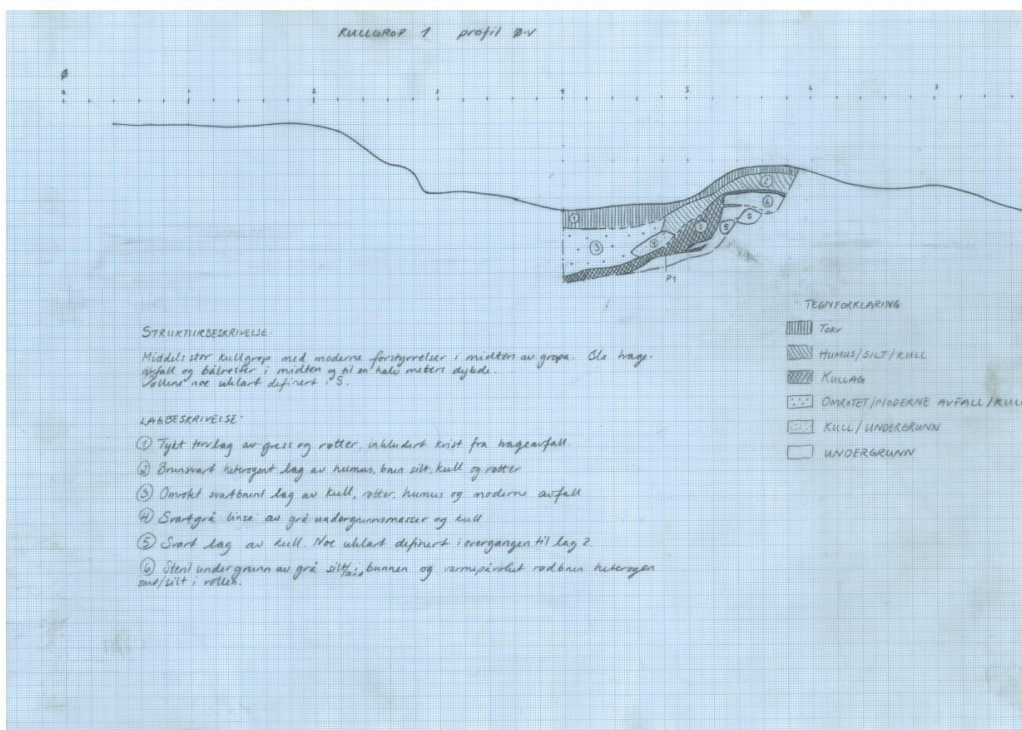 KULLGROP 1 profil Ø-V
Ø
0 1 2 3 4 5 6 7
1 2 3
P1
TEGNFORKLARING
TORV
HUMUS/SILT/KULL
KULLAG
OMROTET/MODERNE AVFALL/KULL
KULL/UNDERGRUNN
UNDERGRUNN
STRUKTURBESKRIVELSE
Middels stor kullgrop med moderne forstyrrelser i midten av gropa. Bla hage-
avfall og bålrester i midten og til en halv meters dybde.
Vollene noe uklart definert i S.
LAGBESKRIVELSE:
① Tykt torvlag av gress og røtter, inkludert kvist fra hageavfall
② Brunsvart heterogent lag av humus, brun silt, kull og røtter
③ Omrotet svartbrunt lag av kull, røtter, humus og moderne avfall
④ Svartgrå linse av grå undergrunnsmasser og kull
⑤ Svart lag av kull. Noe uklart definert i overgangen til lag 2.
⑥ Steril undergrunn av grå silt/sand i bunnen og varmepåvirket rødbrun heterogen
sand/silt i vollen.